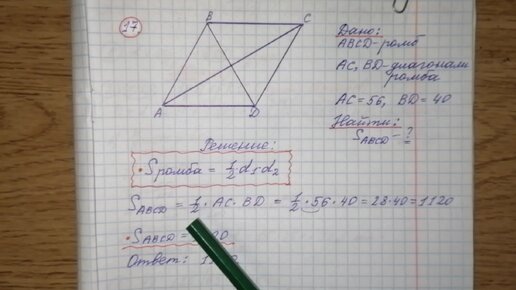 17
B C
A D
Дано:
ABCD-ромб
AC, BD-диагонали
ромба
AC=56, BD=40
Найти:
S_ABCD - ?
Решение:
• S ромба = 1/2 d₁d₂
S_ABCD = 1/2 · AC · BD = 1/2 · 56 · 40 = 28·40 = 1120
• S_ABCD =
Ответ: